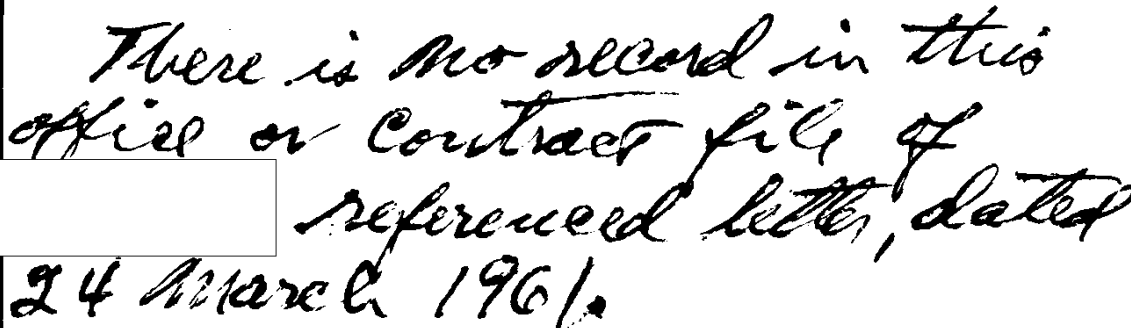 There is no record in this
office or contract file of
referenced letter, dated
24 March 1961.